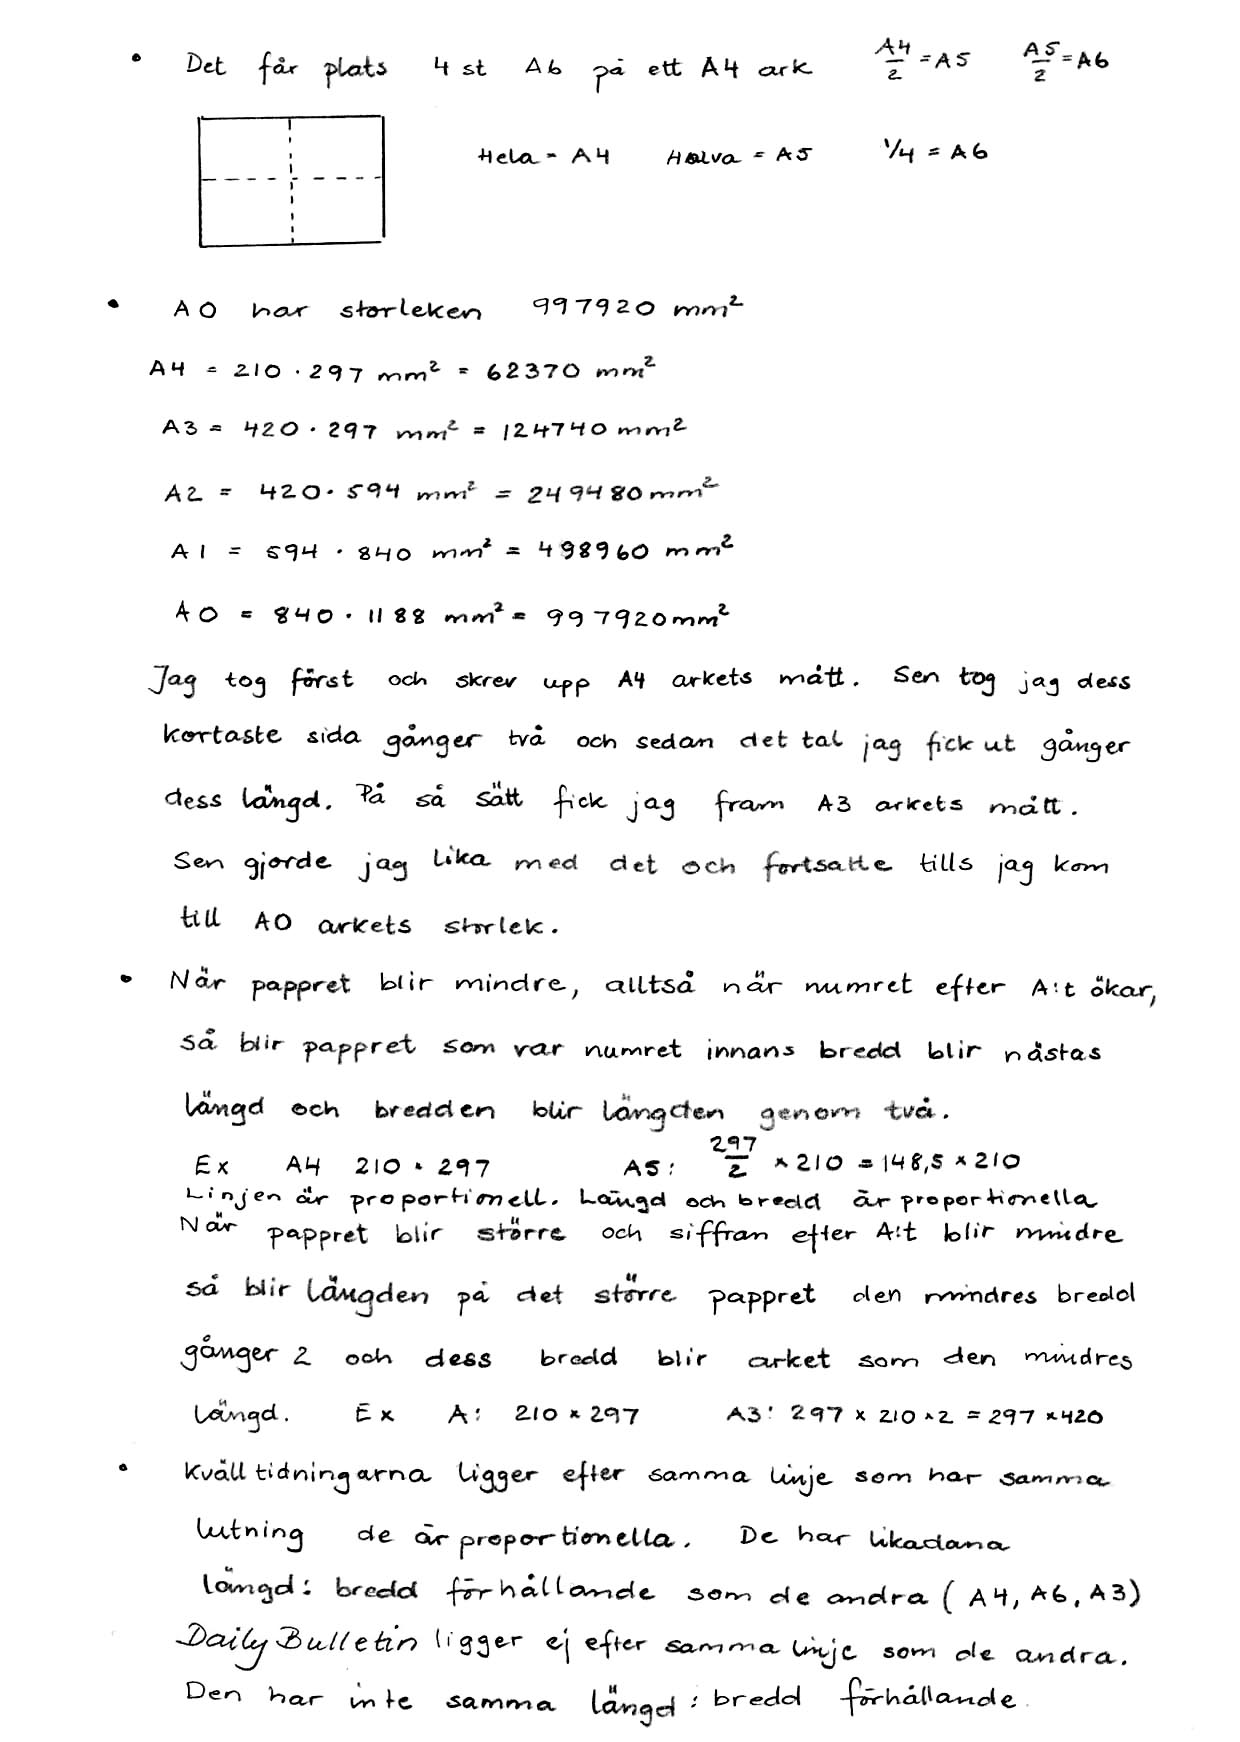 • Det får plats 4 st A6 på ett A4 ark A4/2 = A5 A5/2 = A6
Hela = A4 Halva = A5 1/4 = A6
• A0 har storleken 997920 mm²
A4 = 210 · 297 mm² = 62370 mm²
A3 = 420 · 297 mm² = 124740 mm²
A2 = 420 · 594 mm² = 249480 mm²
A1 = 594 · 840 mm² = 498960 mm²
A0 = 840 · 1188 mm² = 997920 mm²
Jag tog först och skrev upp A4 arkets mått. Sen tog jag dess
kortaste sida gånger två och sedan det tal jag fick ut gånger
dess längd. På så sätt fick jag fram A3 arkets mått.
Sen gjorde jag lika med det och fortsatte tills jag kom
till A0 arkets storlek.
• När pappret blir mindre, alltså när numret efter A:t ökar,
så blir pappret som var numret innans bredd blir nästas
längd och bredden blir längden genom två.
Ex A4 210 · 297 A5: 297/2 × 210 = 148,5 × 210
Linjen är proportinell. Längd och bredd är proportionella
När pappret blir större och siffran efter A:t blir mindre
så blir längden på det större pappret den mindres bredd
gånger 2 och dess bredd blir arket som den mindres
längd. Ex A: 210 × 297 A3: 297 × 210 × 2 = 297 × 420
• Kvälltidningarna ligger efter samma linje som har samma
lutning de är proportionella. De har likadana
längd: bredd förhållande som de andra (A4, A6, A3)
Daily Bulletin ligger ej efter samma linje som de andra.
Den har inte samma längd: bredd förhållande.